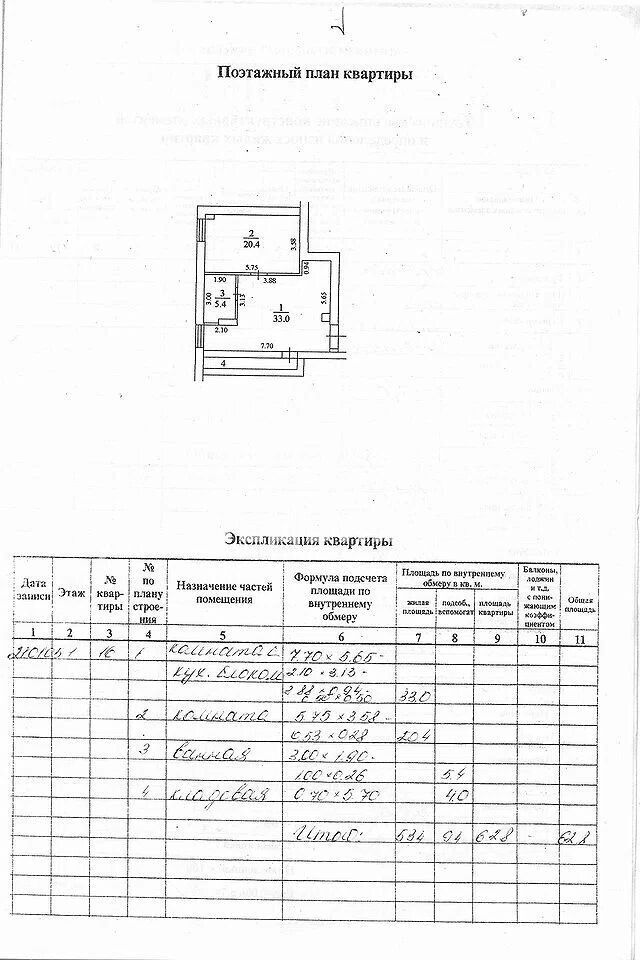 Поэтажный план квартиры
2
20.4
3.58
5.75
0.94
1.90
3.88
3
5.4
3.00
3.13
1
33.0
5.65
2.10
7.70
4
Экспликация квартиры
Дата записи Этаж № квар- тиры № по плану строе- ния Назначение частей помещения Формула подсчета площади по внутреннему обмеру Площадь по внутреннему обмеру в кв. м. жилая площадь подсоб., вспомогат площадь квартиры Балконы, лоджии и т.д. с пони- жающим коэффи- циентом Общая площадь
1 2 3 4 5 6 7 8 9 10 11
1 16 1 комната с 7.70 × 5.65 -
кух. блоком 2.10 × 3.13 -
3.88 × 0.94 -
0.50 × 0.50 33,0
2 комната 5.75 × 3.58 -
0.53 × 0.28 20.4
3 ванная 3.00 × 1.90 -
1.00 × 0.26 5.4
4 кладовая 0.70 × 5.70 4.0
Итого: 53.4 9.4 62.8 - 62.8